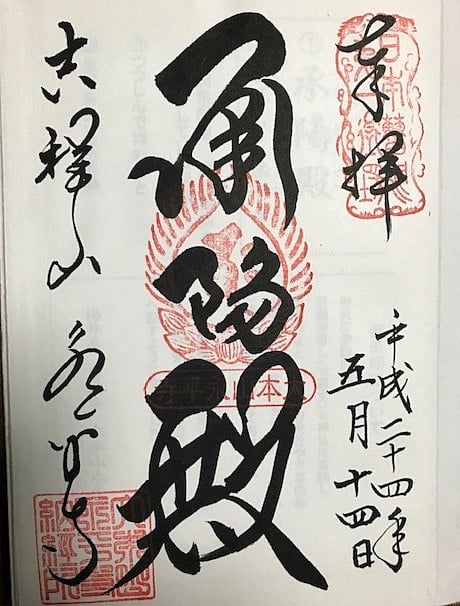 奉拝
平成二十四年
五月十四日
承陽殿
大本山永平寺
吉祥山 永平寺